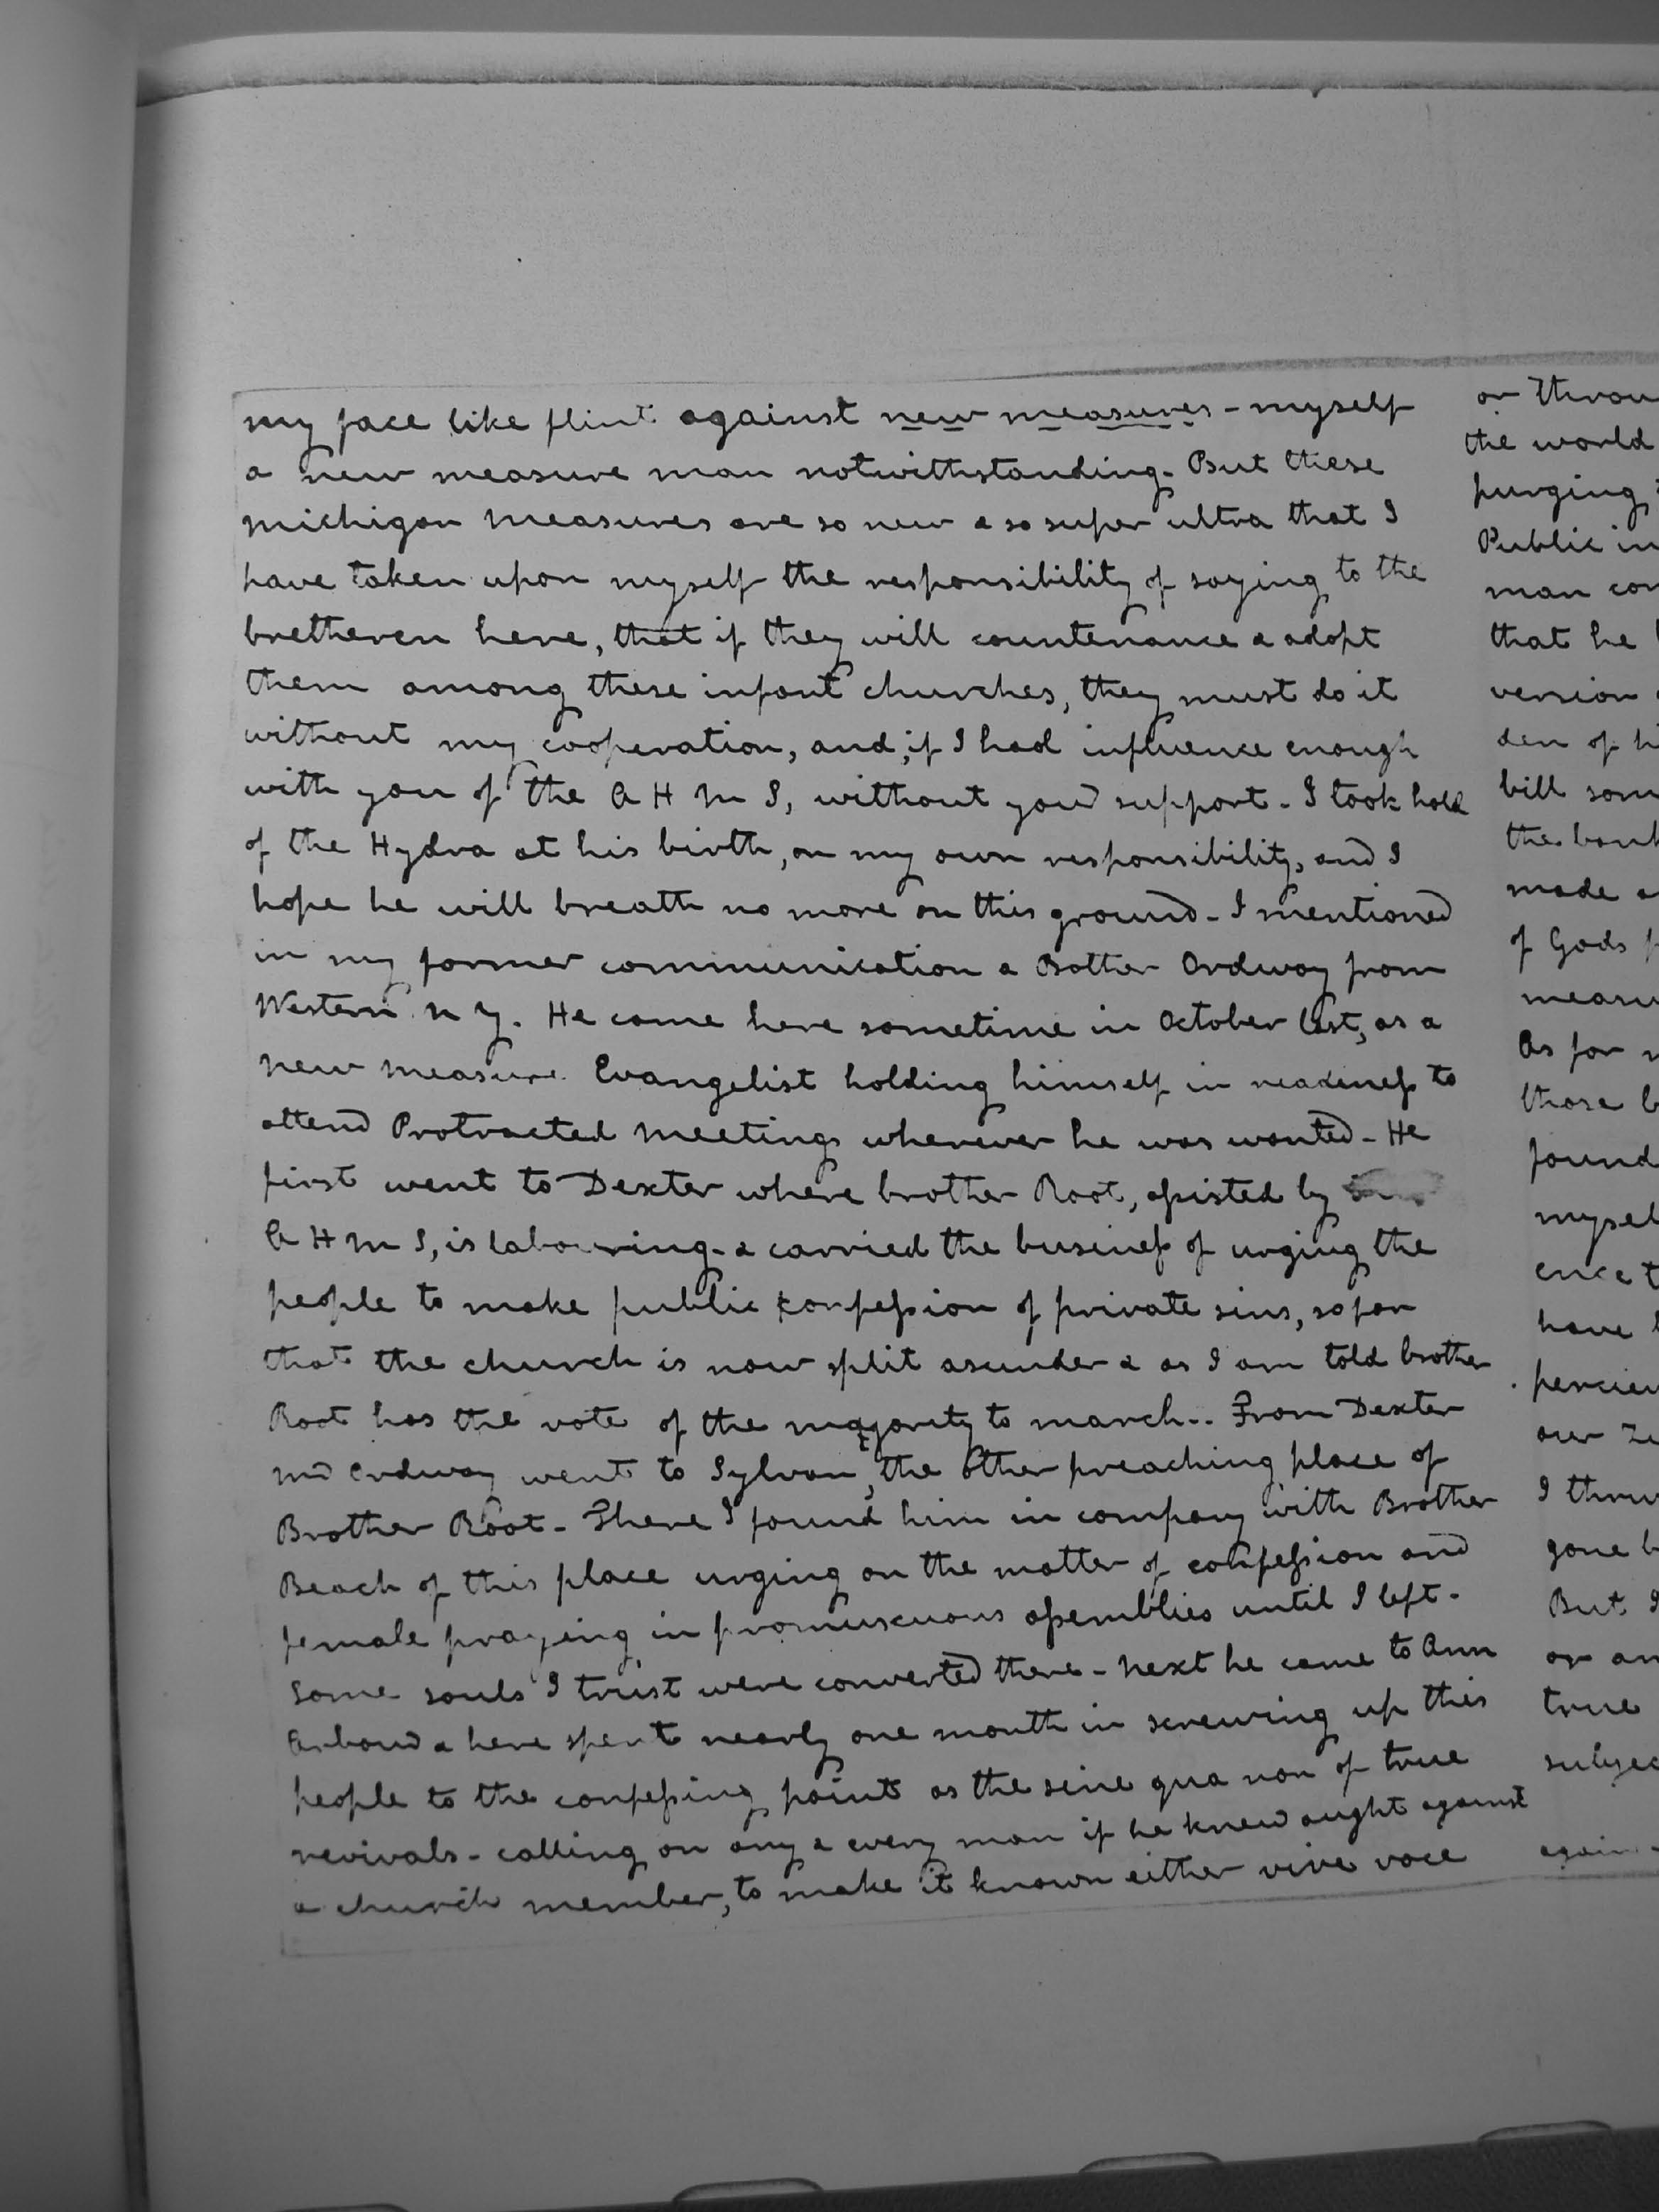 my face like flint against new measures - myself
a new measure man notwithstanding. But these
michigan measures are so new & so super ultra that I
have taken upon myself the responsibility of saying to the
bretheren here, that if they will countenance & adopt
them among these infant churches, they must do it
without my cooperation, and, if I had influence enough
with you of the A H M S, without your support. I took hold
of the Hydra at his birth, on my own responsibility, and I
hope he will breath no more on this ground - I mentioned
in my former communication a Bother Ordway from
Western N Y. He came here sometime in October last, as a
new measure Evangelist holding himself in readiness to
attend Protracted meetings wherever he was wanted - He
first went to Dexter where brother Root, assisted by
A H M S, is labouring - & carried the business of urging the
people to make public confession of private sins, so far
that the church is now split asunder & as I am told brother
Root has the vote of the majority to march.. From Dexter
Ordway went to Sylvan, the other preaching place of
Brother Root - There I found him in company with Brother
Beach of this place urging on the matter of confession and
female praying in promiscuous assemblies until I left.
Some souls I trust were converted there - next he came to Ann
Arbour & here spent nearly one month in screwing up this
people to the confessing point as the sine qua non of true
revivals - calling on any & every man if he knew ought against
a church member, to make it known either vive voce
or throu
the world
purging
Public in
man con
that he
version
den of hi
bill som
the bank
made a
of Gods
measu
As for
those b
found
mysel
ence t
have
percie
over Ze
I thru
gone b
But I
or an
true
subjec
again